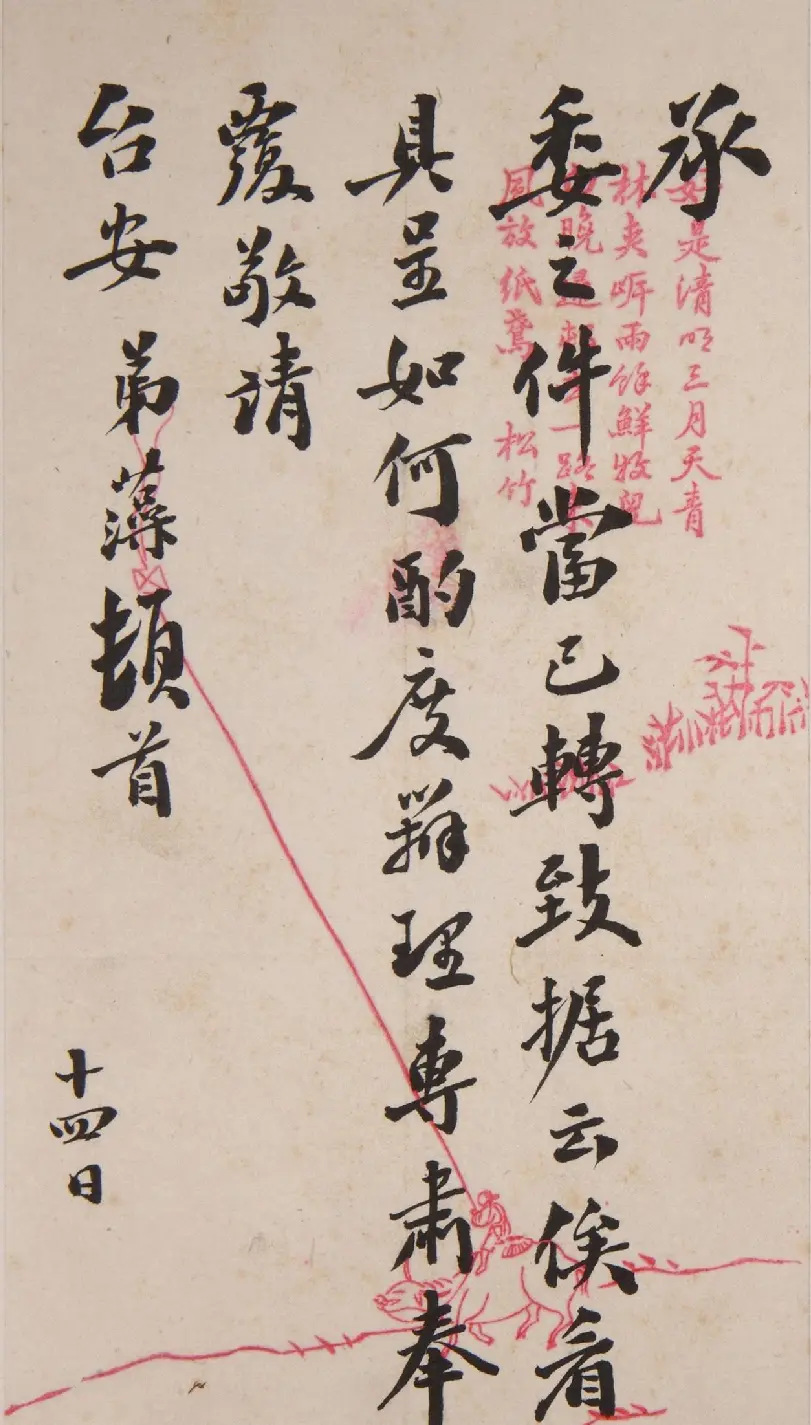 承
委之件當已轉致据云俟看
具呈如何酌度辦理專肅奉
覆敬請
台安 弟藻頓首
十四日
好是清明三月天青
林夾岸雨餘鮮牧兒
晚 一路
風放紙鳶 松竹